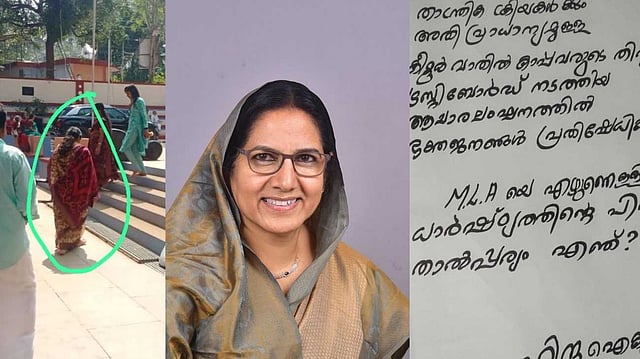 താന്ത്രിക ക്രിയകൾക്കും
അതി പ്രാധാന്യമുള്ള
വാതിൽ കാപ്പവരുടെ തി
ട്രസ്റ്റിബോർഡ് നടത്തിയ
ആചാരലംഘനത്തിൽ
ഭക്തജനങ്ങൾ പ്രതിഷേധി
M.L.A യെ എഴുന്നെള്ളി
ധാർഷ്ഠ്യത്തിന്റെ പി
താൽപ്പര്യം എന്ത്?